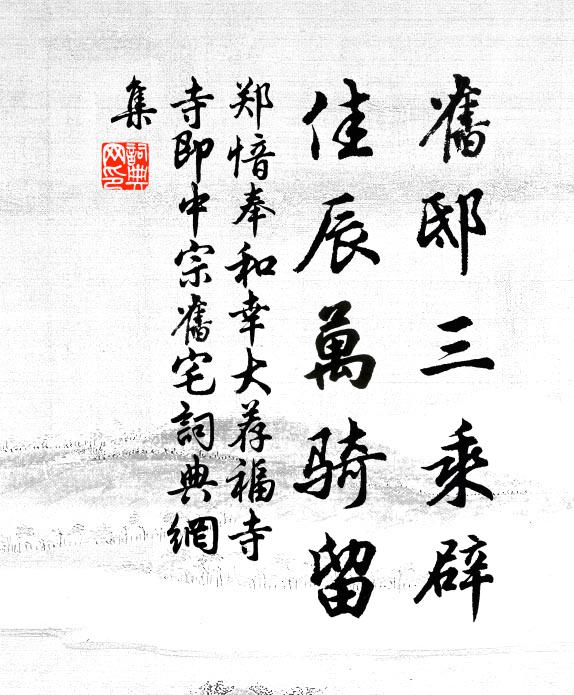 舊邸三乘辟
佳辰萬骑留
郑愔奉和幸大荐福寺
寺即中宗舊宅詞典網
集
詞典
网印